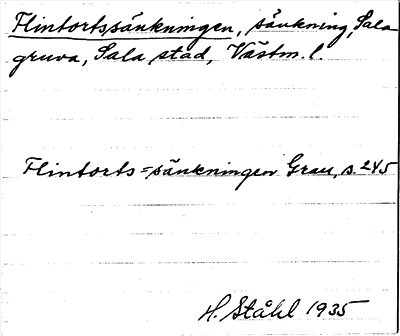 Flintortssänkningen, sänkning, Sala
gruva, Sala stad, Västm. l.
Flintorts=sänkningen Grau, s. 245
H. Ståhl 1935